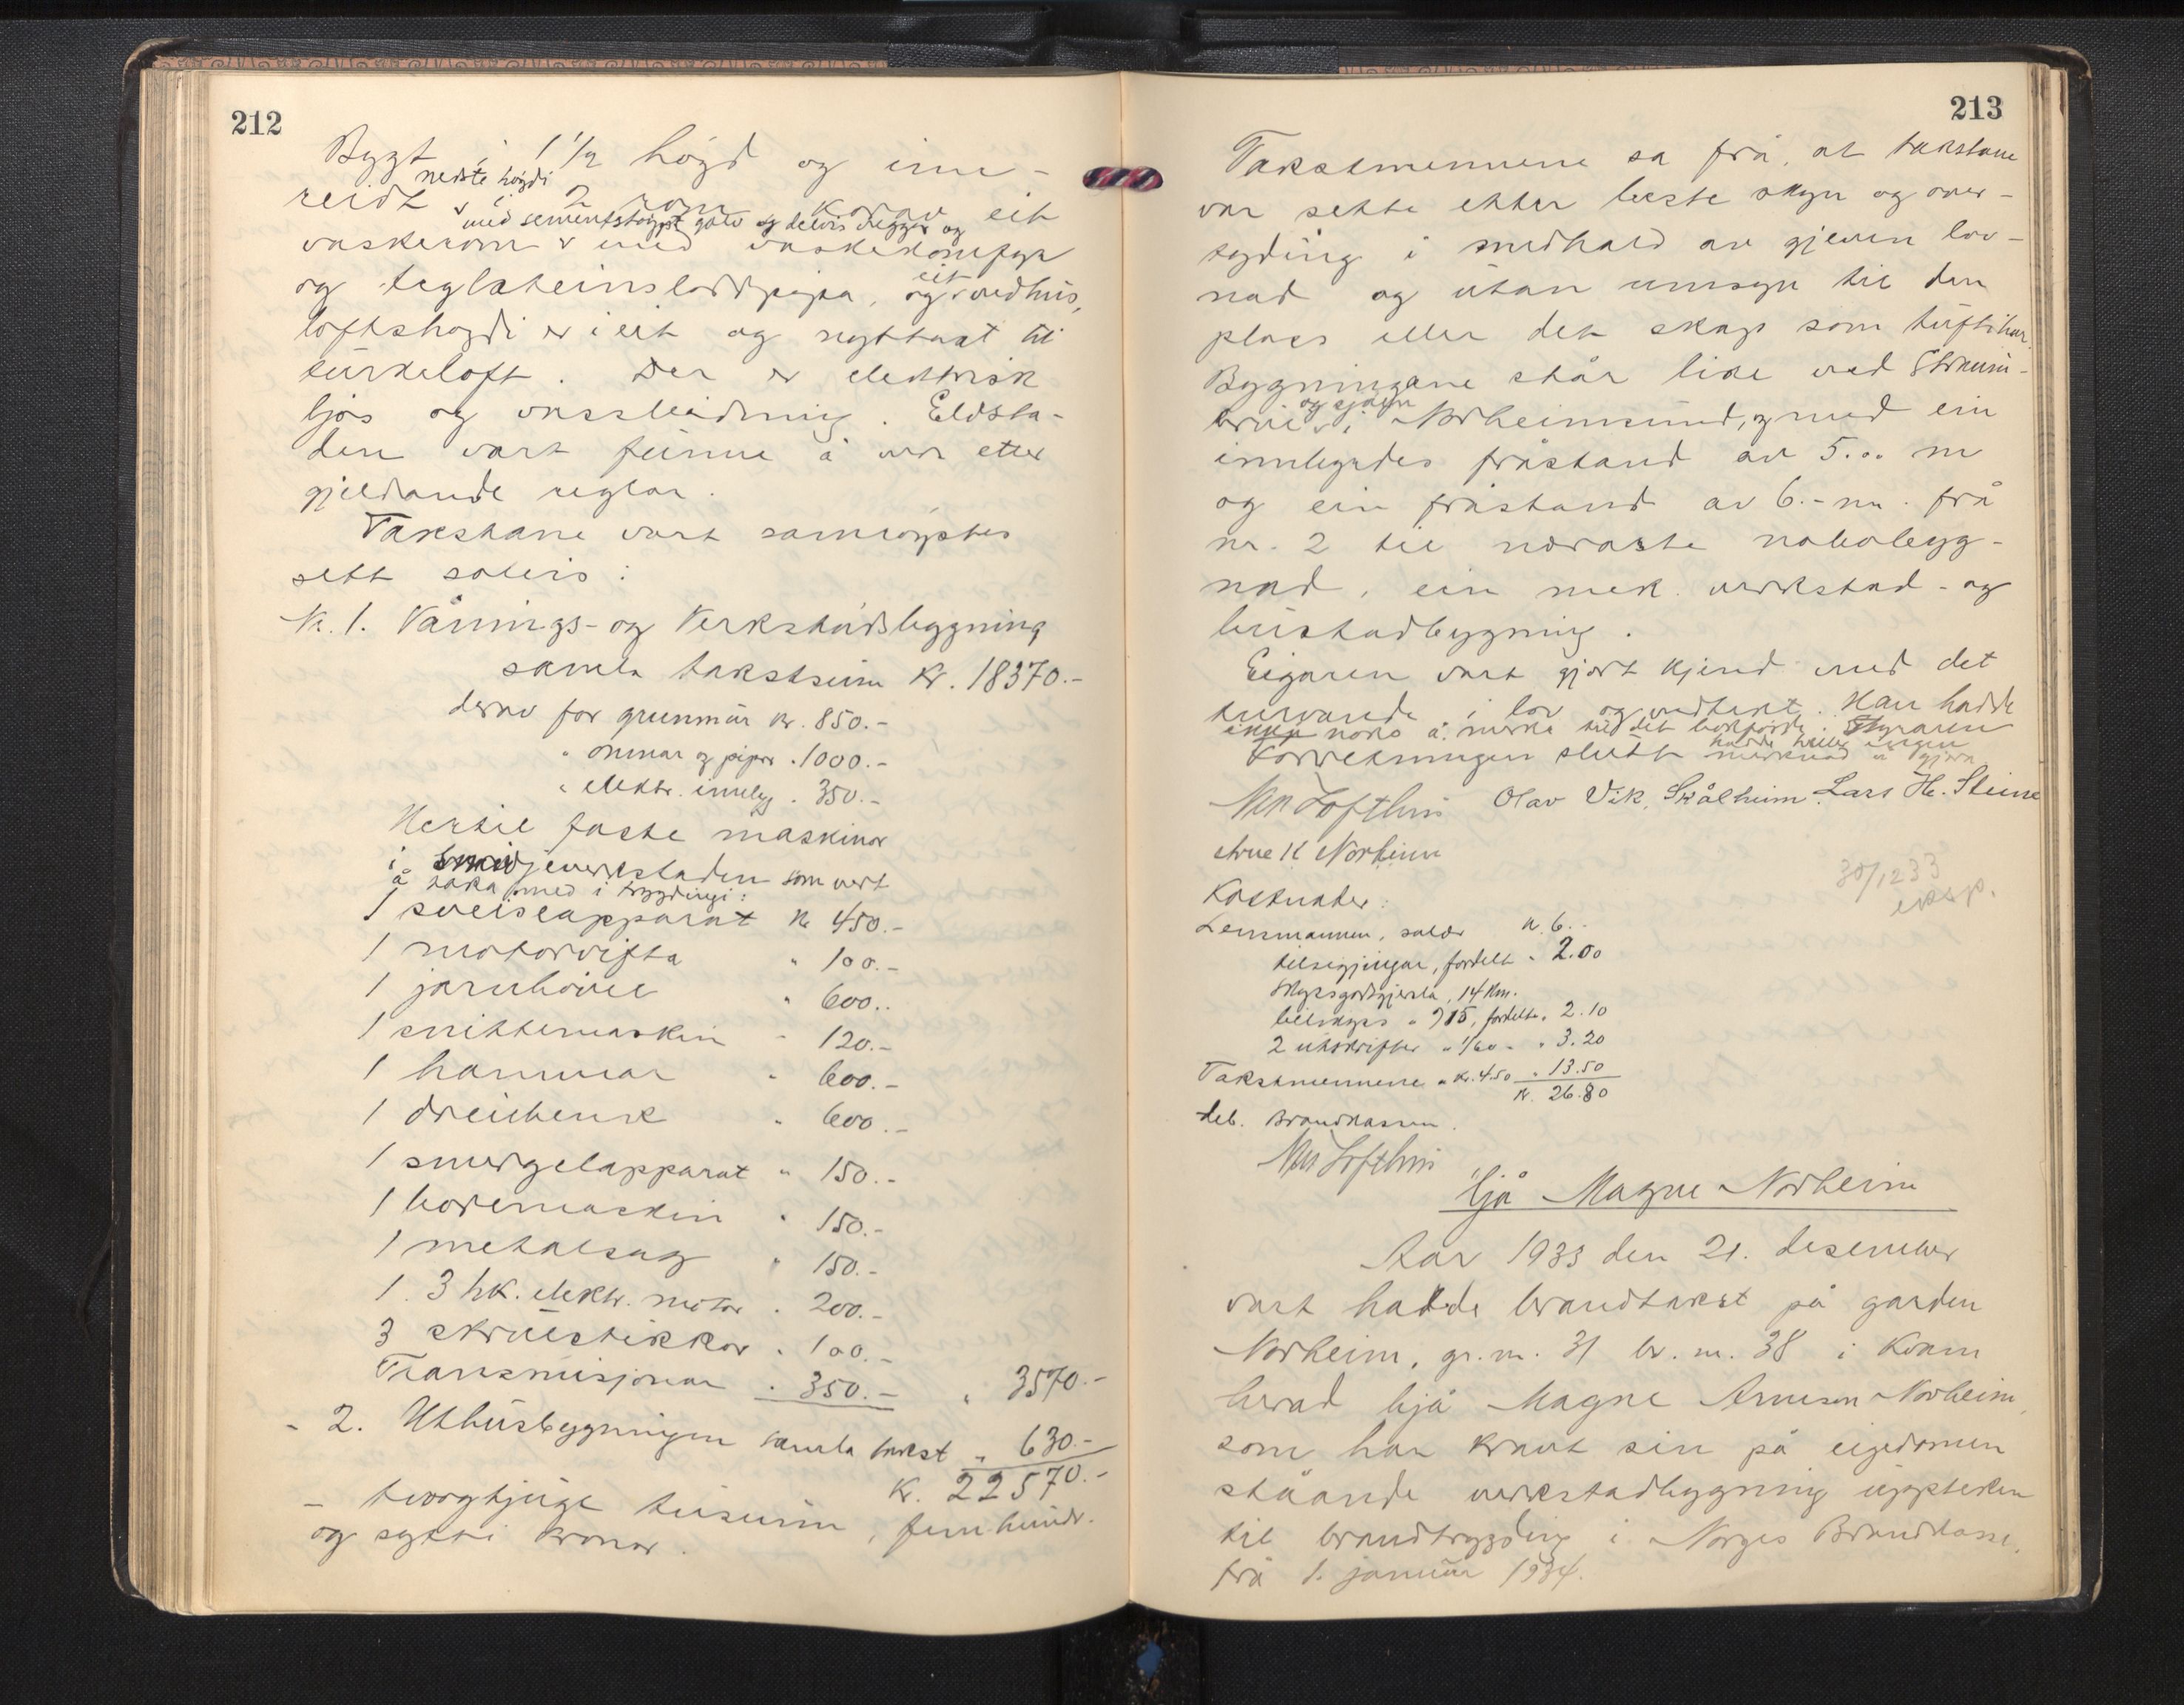 212
Bygt i 1 1/2 högd og inn-
nedste högdi
reidt v i 2 rom korav eit
med sementstöypt golv og delvis vegger og
vaskerom v med vaskekomfyr
eit
og teglsteinsloddpipa, og v vedhus,
loftshögdi er i eit og nyttast til
turkeloft. Der er elektrisk
ljos og vassleidning. Eldsta-
den vart funne å vera etter
gjeldande reglar.
Takstane vart samröystes
sett soleis:
Nr. 1. Vånings- og Verkstadsbygning
samla takstsum Kr. 18370.-
derav for grunmur kr. 850.-
" omnar og pipor " 1000.-
" elektr. innlegg " 350.-
Hertil faste maskinor
i smidjeverkstaden som vert
å taka med i trygdingi:
1 sveiseapparat Kr 450.-
1 motorvifta " 100.-
1 jarnhövel " 600.-
1 snittemaskin " 120.-
1 hammar " 600.-
1 dreiebenk " 600.-
1 smergelapparat " 150.-
1 boremaskin " 150.-
1 metalsag " 150.-
1. 3 hk. elektr. motor " 200.-
3 skruestikkor " 100.-
Transmisjonar " 350.- " 3570.-
- 2. Uthusbygningen samla takst " 630.-
Kr. 22570.-
- tvoogtjuge tusund, fem hundr.
og sytti kronor.
213
Takstmennene sa frå, at takstane
var sette etter beste skyn og over-
tyding i medhald av gjeven lov-
nad og utan umsyn til den
plass eller det skap som tufti har.
Bygningane står like ved Straum-
og sjøen
brui v i Norheimsund, og med ein
innbyrdes fråstand av 5.00 m
og ein fråstand av 6.- m. frå
nr. 2 til næraste nabobygg-
nad, ein mek. verkstad- og
bustadbygning.
Eigaren vart gjort kjend med det
turvande i lov og vedtekt. Han hadde
ikkje noko å merka til det bokförde. Styraren
hadde heller ingen
Forretningen slutt merknad å gjera
Nils Lofthus Olav Vik, Skålheim. Lars H. Steine
Arne K Norheim
30/12 33
eksp.
Kostnader:
Lensmannen, salær kr. 6.-
tilsegjingar, fordelt " 2.00
Skyssgodtgjersla, 14 km.
bilskyss " 15, fordelt " 2.10
2 utskrifter " 1/60 " " 3.20
Takstmennene " kr. 4.50 " 13.50
Kr. 26.80
deb. Brandkassen.
Nils Lofthus
hjå Magne Norheim
Aar 1933 den 21. desember
vart hadde brandtakst på garden
Norheim, gr. nr. 31 br. nr. 38 i Kvam
herad hjå Magne Arneson Norheim,
som har kravt sin på eigedomen
ståande verkstadbygning uppteken
til brandtrygding i Norges Brandkasse,
frå 1. januar 1934.